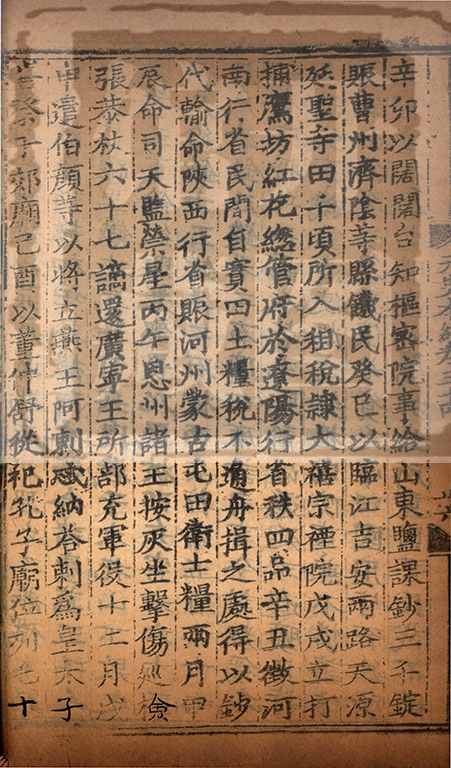 辛卯以闊闊台知樞密院事給山東鹽課鈔三千錠
賑曹州濟陰等縣饑民癸巳以臨江吉安兩路天源
延聖寺田千頃所入租稅隷大禧宗禋院戊戌立打
捕鷹坊紅花緫管府於遼陽行省秩四品辛丑徵河
南行省民間自實田土糧稅不通舟楫之處得以鈔
代輸命陝西行省賑河州蒙古屯田衛士糧兩月甲
辰命司天監禜星丙午恩州諸王按灰坐擊傷巡檢
張恭杖六十七謫還廣寧王所部充軍役十二月戊
申遣伯顏等以將立燕王阿剌忒納荅剌爲皇太子
告祭于郊廟己酉以董仲舒從祀孔子廟位列七十